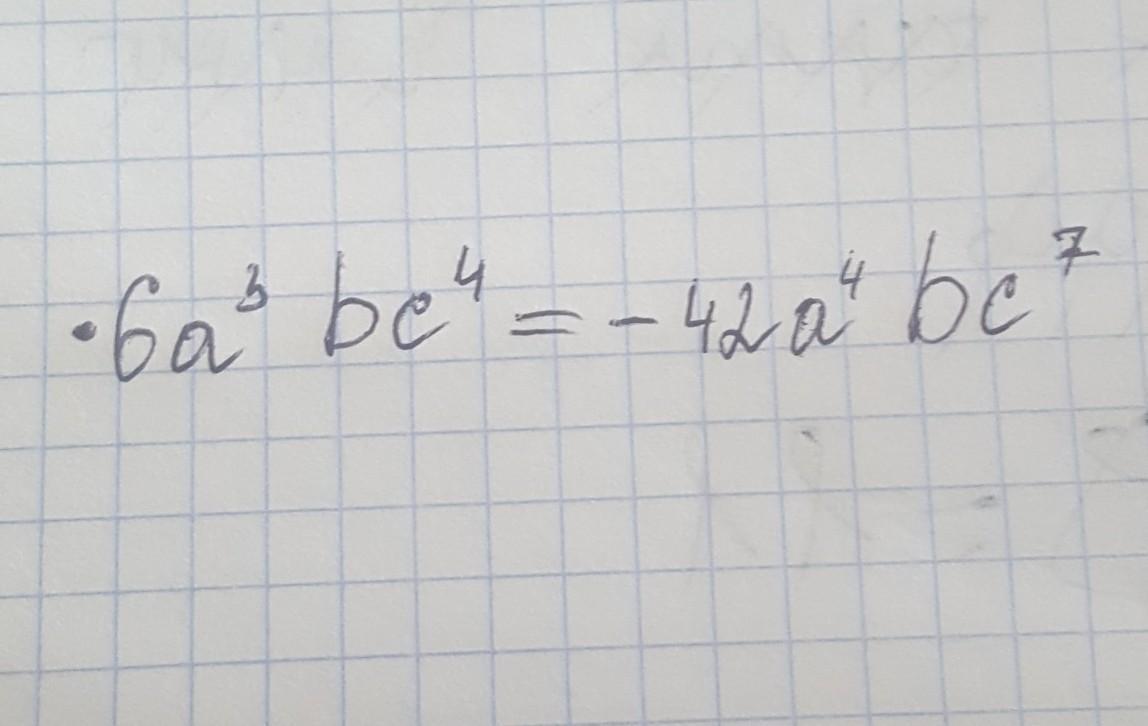 ·6a³ bc⁴ = -42a⁴ bc⁷